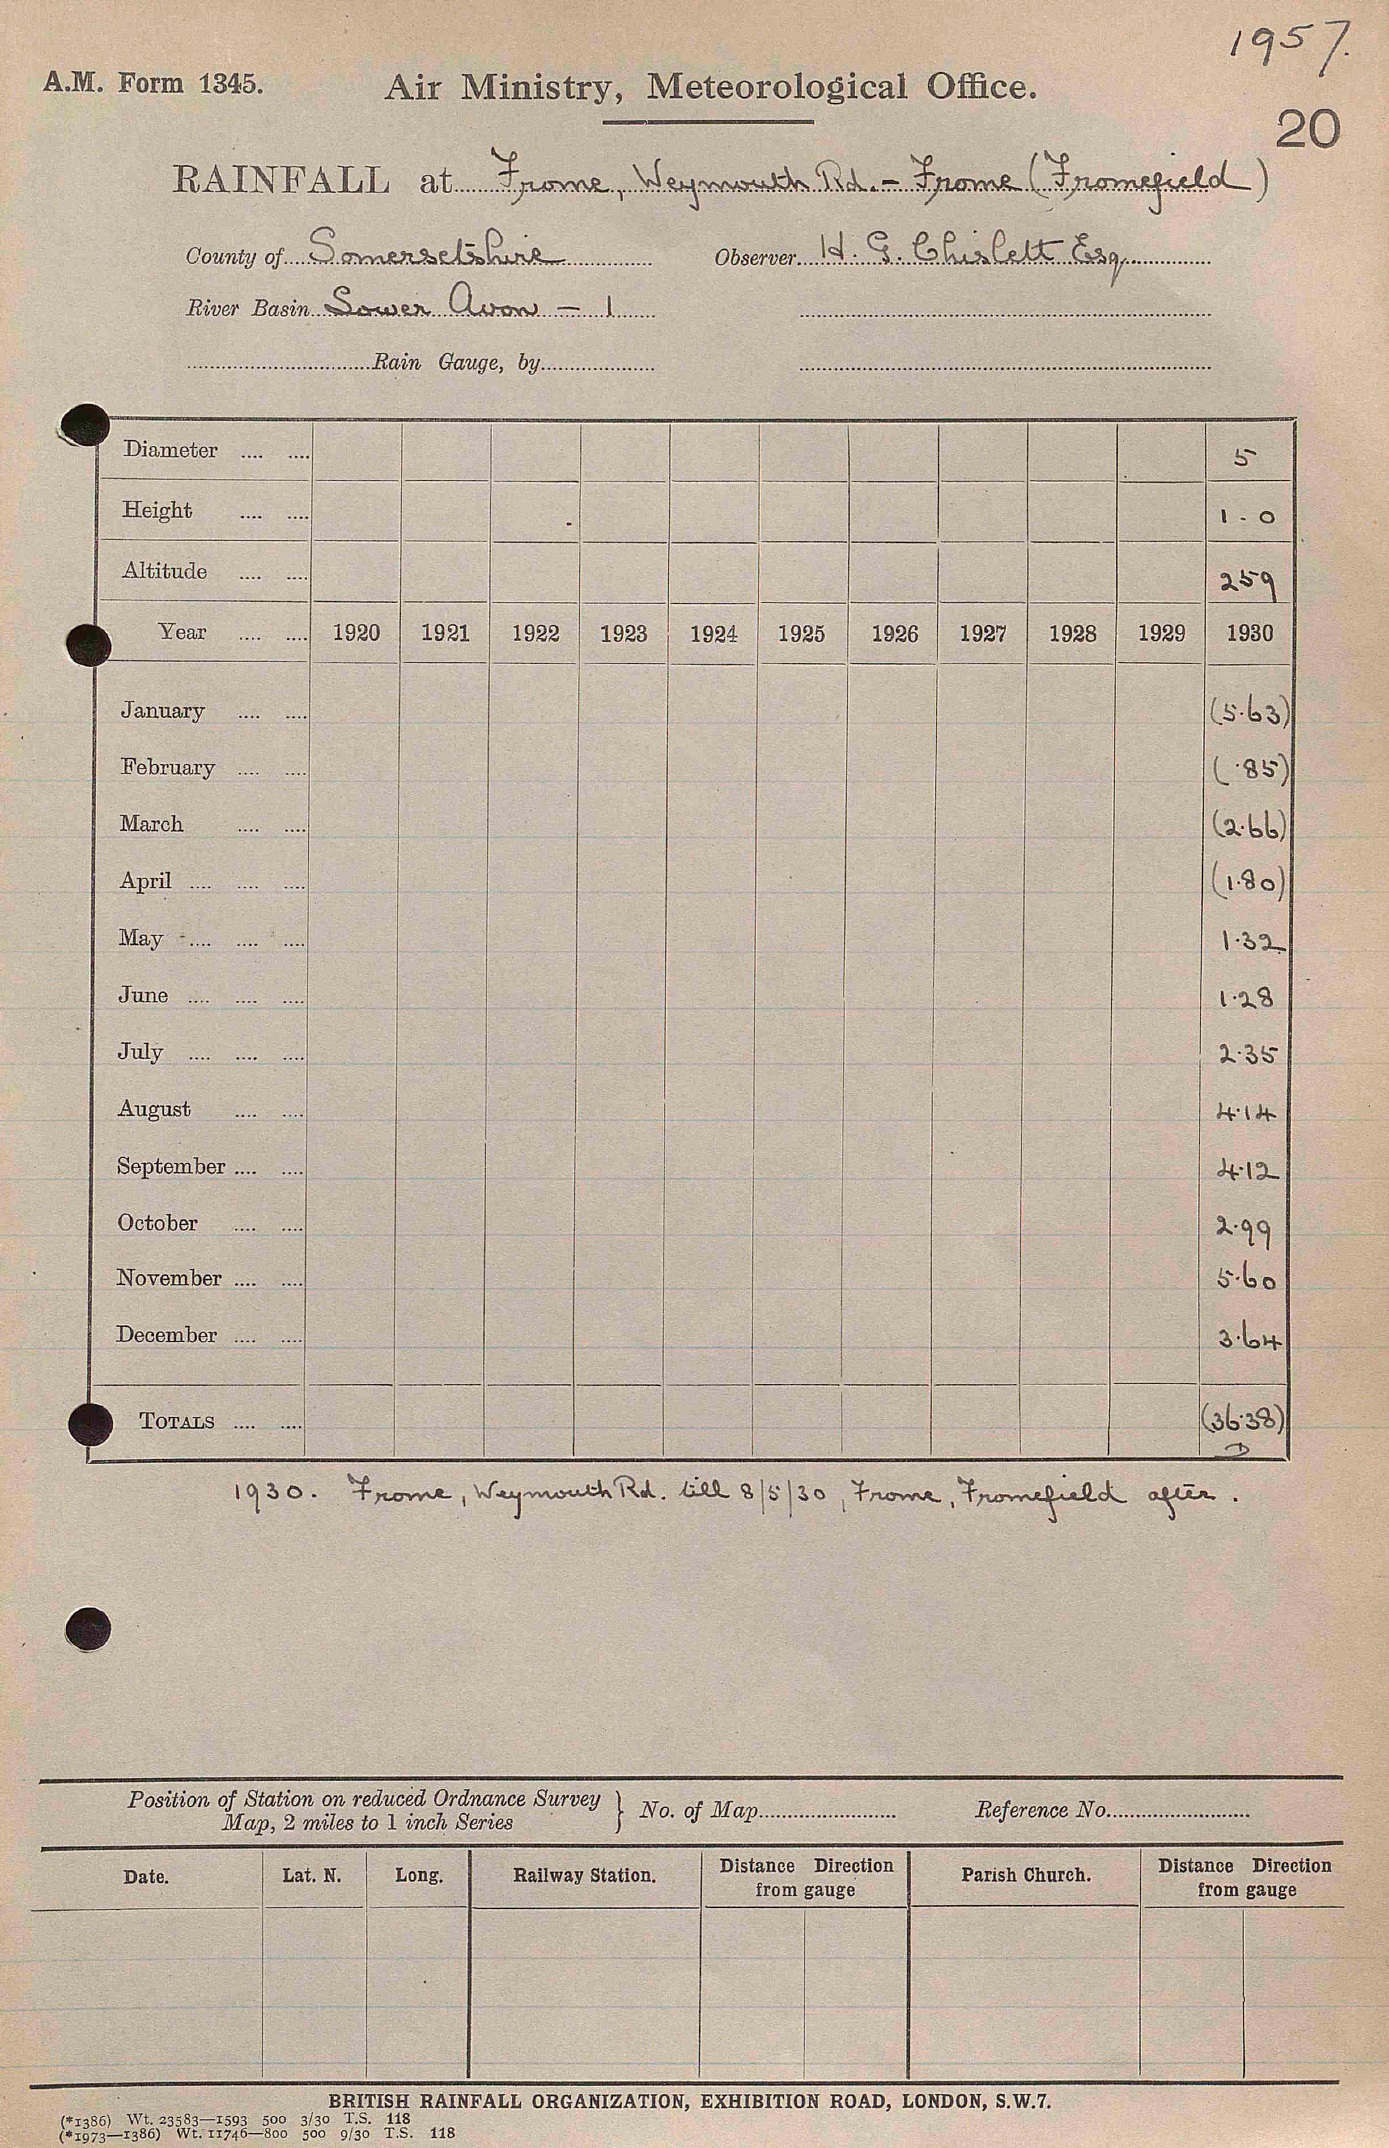 1957.
A.M. Form 1345. Air Ministry, Meteorological Office.
20
RAINFALL at Frome, Weymouth Rd. - Frome (Fromefield)
County of Somersetshire Observer H. G. Chislett Esq.
River Basin Lower Avon - 1
Rain Gauge, by
Diameter .... .... 5
Height .... .... 1 - 0
Altitude .... .... 259
Year .... .... 1920 1921 1922 1923 1924 1925 1926 1927 1928 1929 1930
January .... .... (5.63)
February .... .... ( .85)
March .... .... (2.66)
April .... .... .... (1.80)
May .... .... .... 1.32
June .... .... .... 1.28
July .... .... .... 2.35
August .... .... 4.14
September .... .... 4.12
October .... .... 2.99
November .... .... 5.60
December .... .... 3.64
TOTALS .... .... (36.38)
D
1930. Frome, Weymouth Rd. till 8/5/30, Frome, Fromefield after.
Position of Station on reduced Ordnance Survey
Map, 2 miles to 1 inch Series } No. of Map Reference No.
Date. Lat. N. Long. Railway Station. Distance Direction from gauge Parish Church. Distance Direction from gauge
BRITISH RAINFALL ORGANIZATION, EXHIBITION ROAD, LONDON, S.W.7.
(*1386) Wt. 23583—1593 500 3/30 T.S. 118
(*1973—1386) Wt. 11746—800 500 9/30 T.S. 118